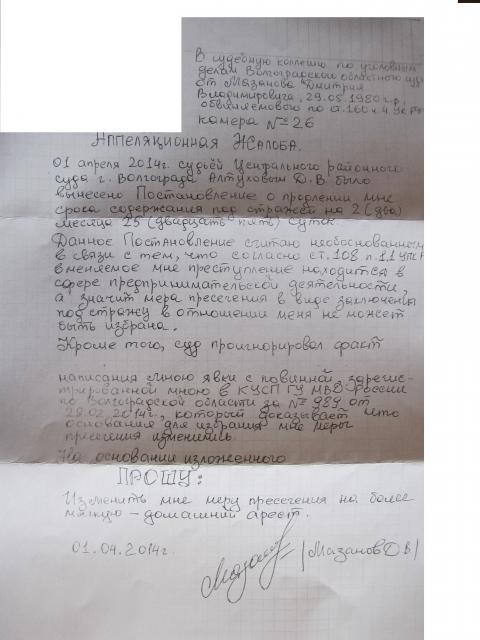 В судебную коллегию по уголовным
делам Волгоградского областного суда
от Мазанова Дмитрия
Владимировича, 29.05.1980 г.р.,
обвиняемого по ст. 160 ч 4 УК РФ
камера № 26
Аппеляционная Жалоба.
01 апреля 2014г. судьёй Центрального районного
суда г. Волгограда Алтуховым Д.В. было
вынесено Постановление о продлении мне
срока содержания под стражей на 2 (два)
месяца 25 (двадцать пять) суток.
Данное Постановление считаю необоснованным
в связи с тем, что согласно ст. 108 п. 1.1 УПК Р
вменяемое мне преступление находится в
сфере предпринимательской деятельности,
а значит мера пресечения в виде заключения
под стражу в отношении меня не может
быть избрана.
Кроме того, суд проигнорировал факт
написания мною явки с повинной, зарегис-
трированной мною в КУСП ГУ МВД России
по Волгоградской области за № 989 от
28.02.2014г., который доказывает что
основания для избрания мне меры
пресечения изменились.
На основании изложенного
ПРОШУ:
Изменить мне меру пресечения на более
мягкую – домашний арест.
01.04.2014г.
Мазанов /Мазанов Д В/